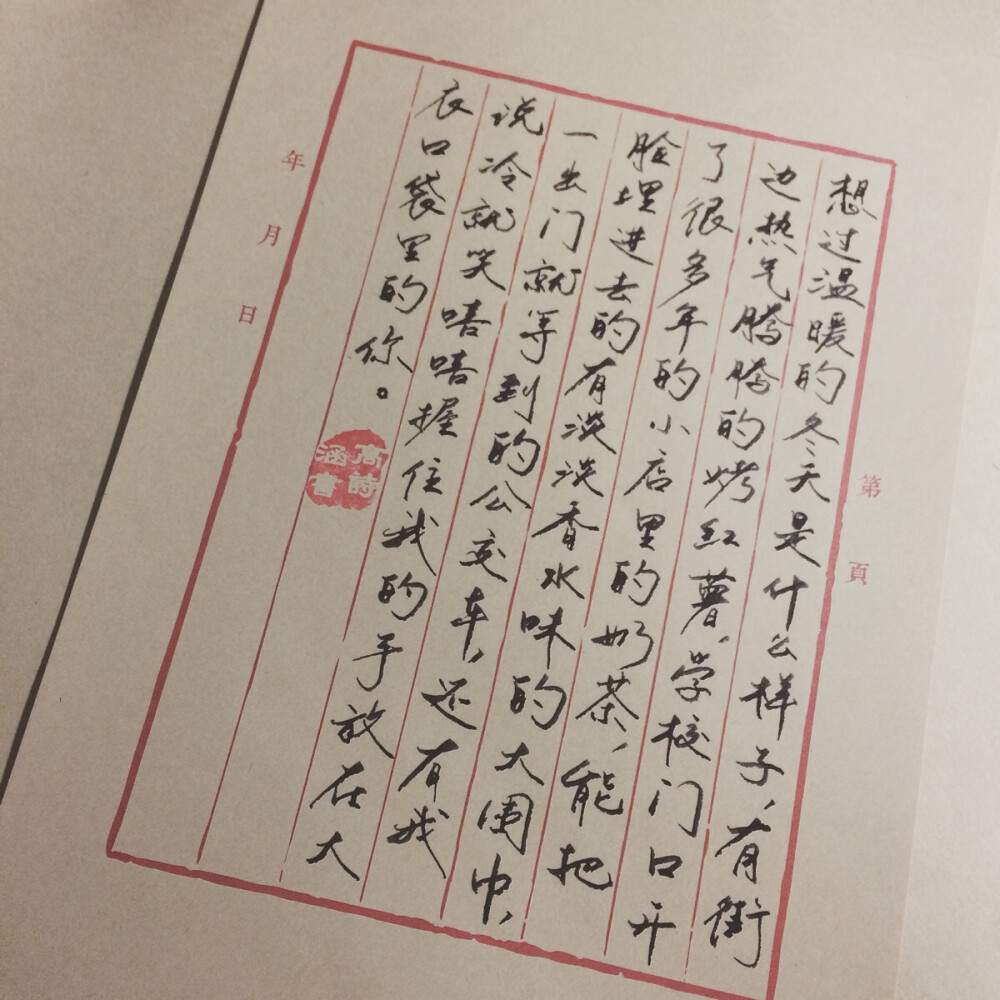 第 頁
想过温暖的冬天是什么样子，有街
边热气腾腾的烤红薯，学校门口开
了很多年的小店里的奶茶，能把
脸埋进去的有淡淡香水味的大围巾，
一出门就等到的公交车，还有我
说冷就笑嘻嘻握住我的手放在大
衣口袋里的你。
高詩
涵書
年 月 日